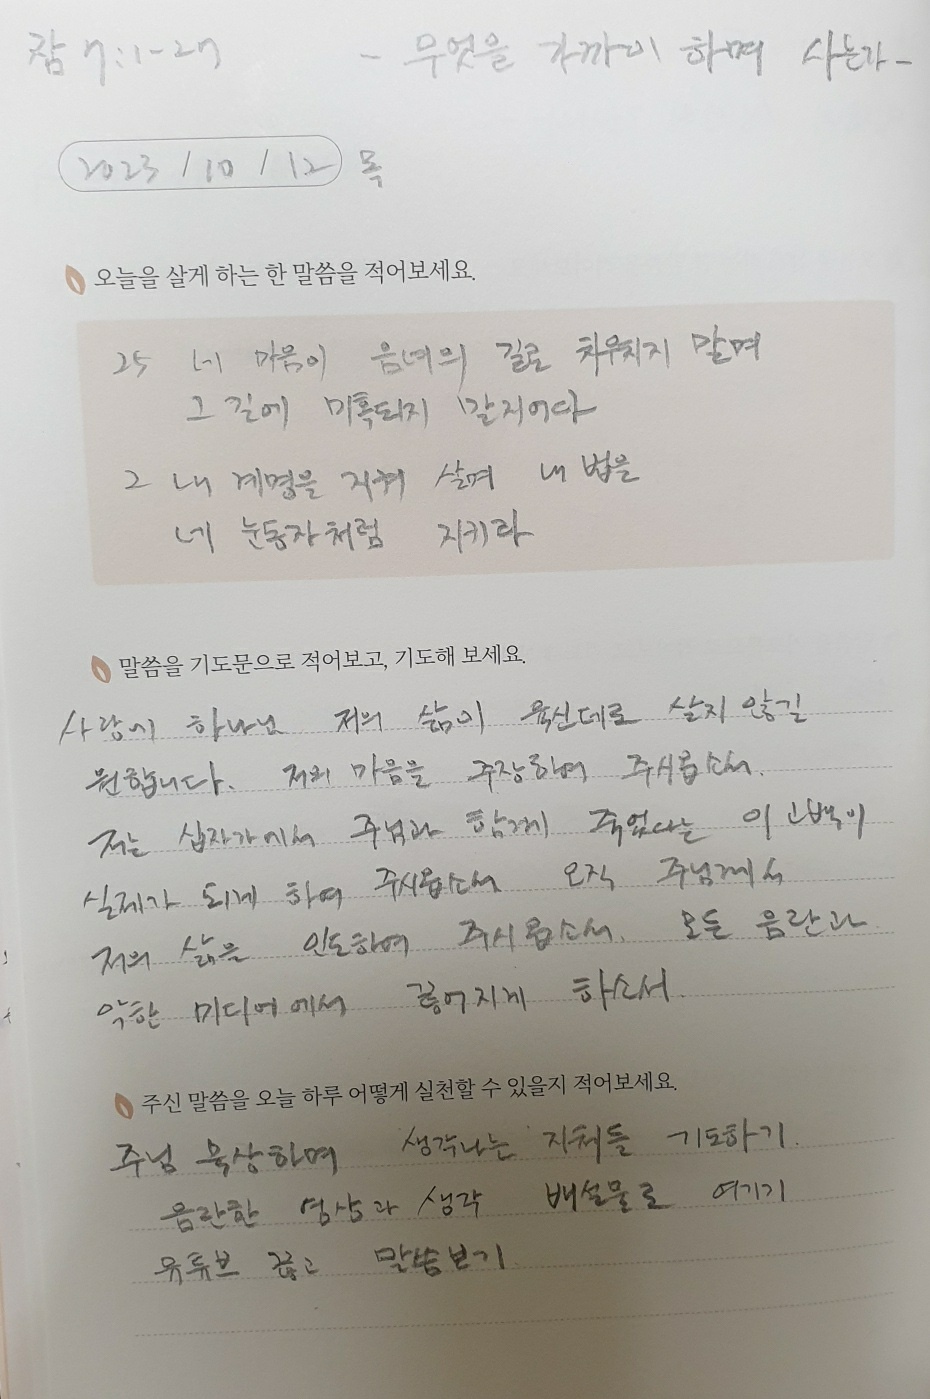 참 7:1-27 - 무엇을 가까이 하며 사는가 -
2023 / 10 / 12 목
오늘을 살게 하는 한 말씀을 적어보세요.
25 네 마음이 음녀의 길로 치우치지 말며
그 길에 미혹되지 말지어다
2 내 계명을 지켜 살며 내 법을
네 눈동자처럼 지키라
말씀을 기도문으로 적어보고, 기도해 보세요.
사랑에 하나님 저의 삶이 육신데로 살지 않길
원합니다. 저의 마음을 주장하여 주시옵소서.
저는 십자가에서 주님과 함께 죽었다는 이 고백이
실제가 되게 하여 주시옵소서 오직 주님께서
저의 삶을 인도하여 주시옵소서. 모든 음란과
악한 미디어에서 끊어지게 하소서.
주신 말씀을 오늘 하루 어떻게 실천할 수 있을지 적어보세요.
주님 묵상하며 생각나는 지체들 기도하기.
음란한 영상과 생각 배설물로 여기기
유튜브 끊고 말씀보기